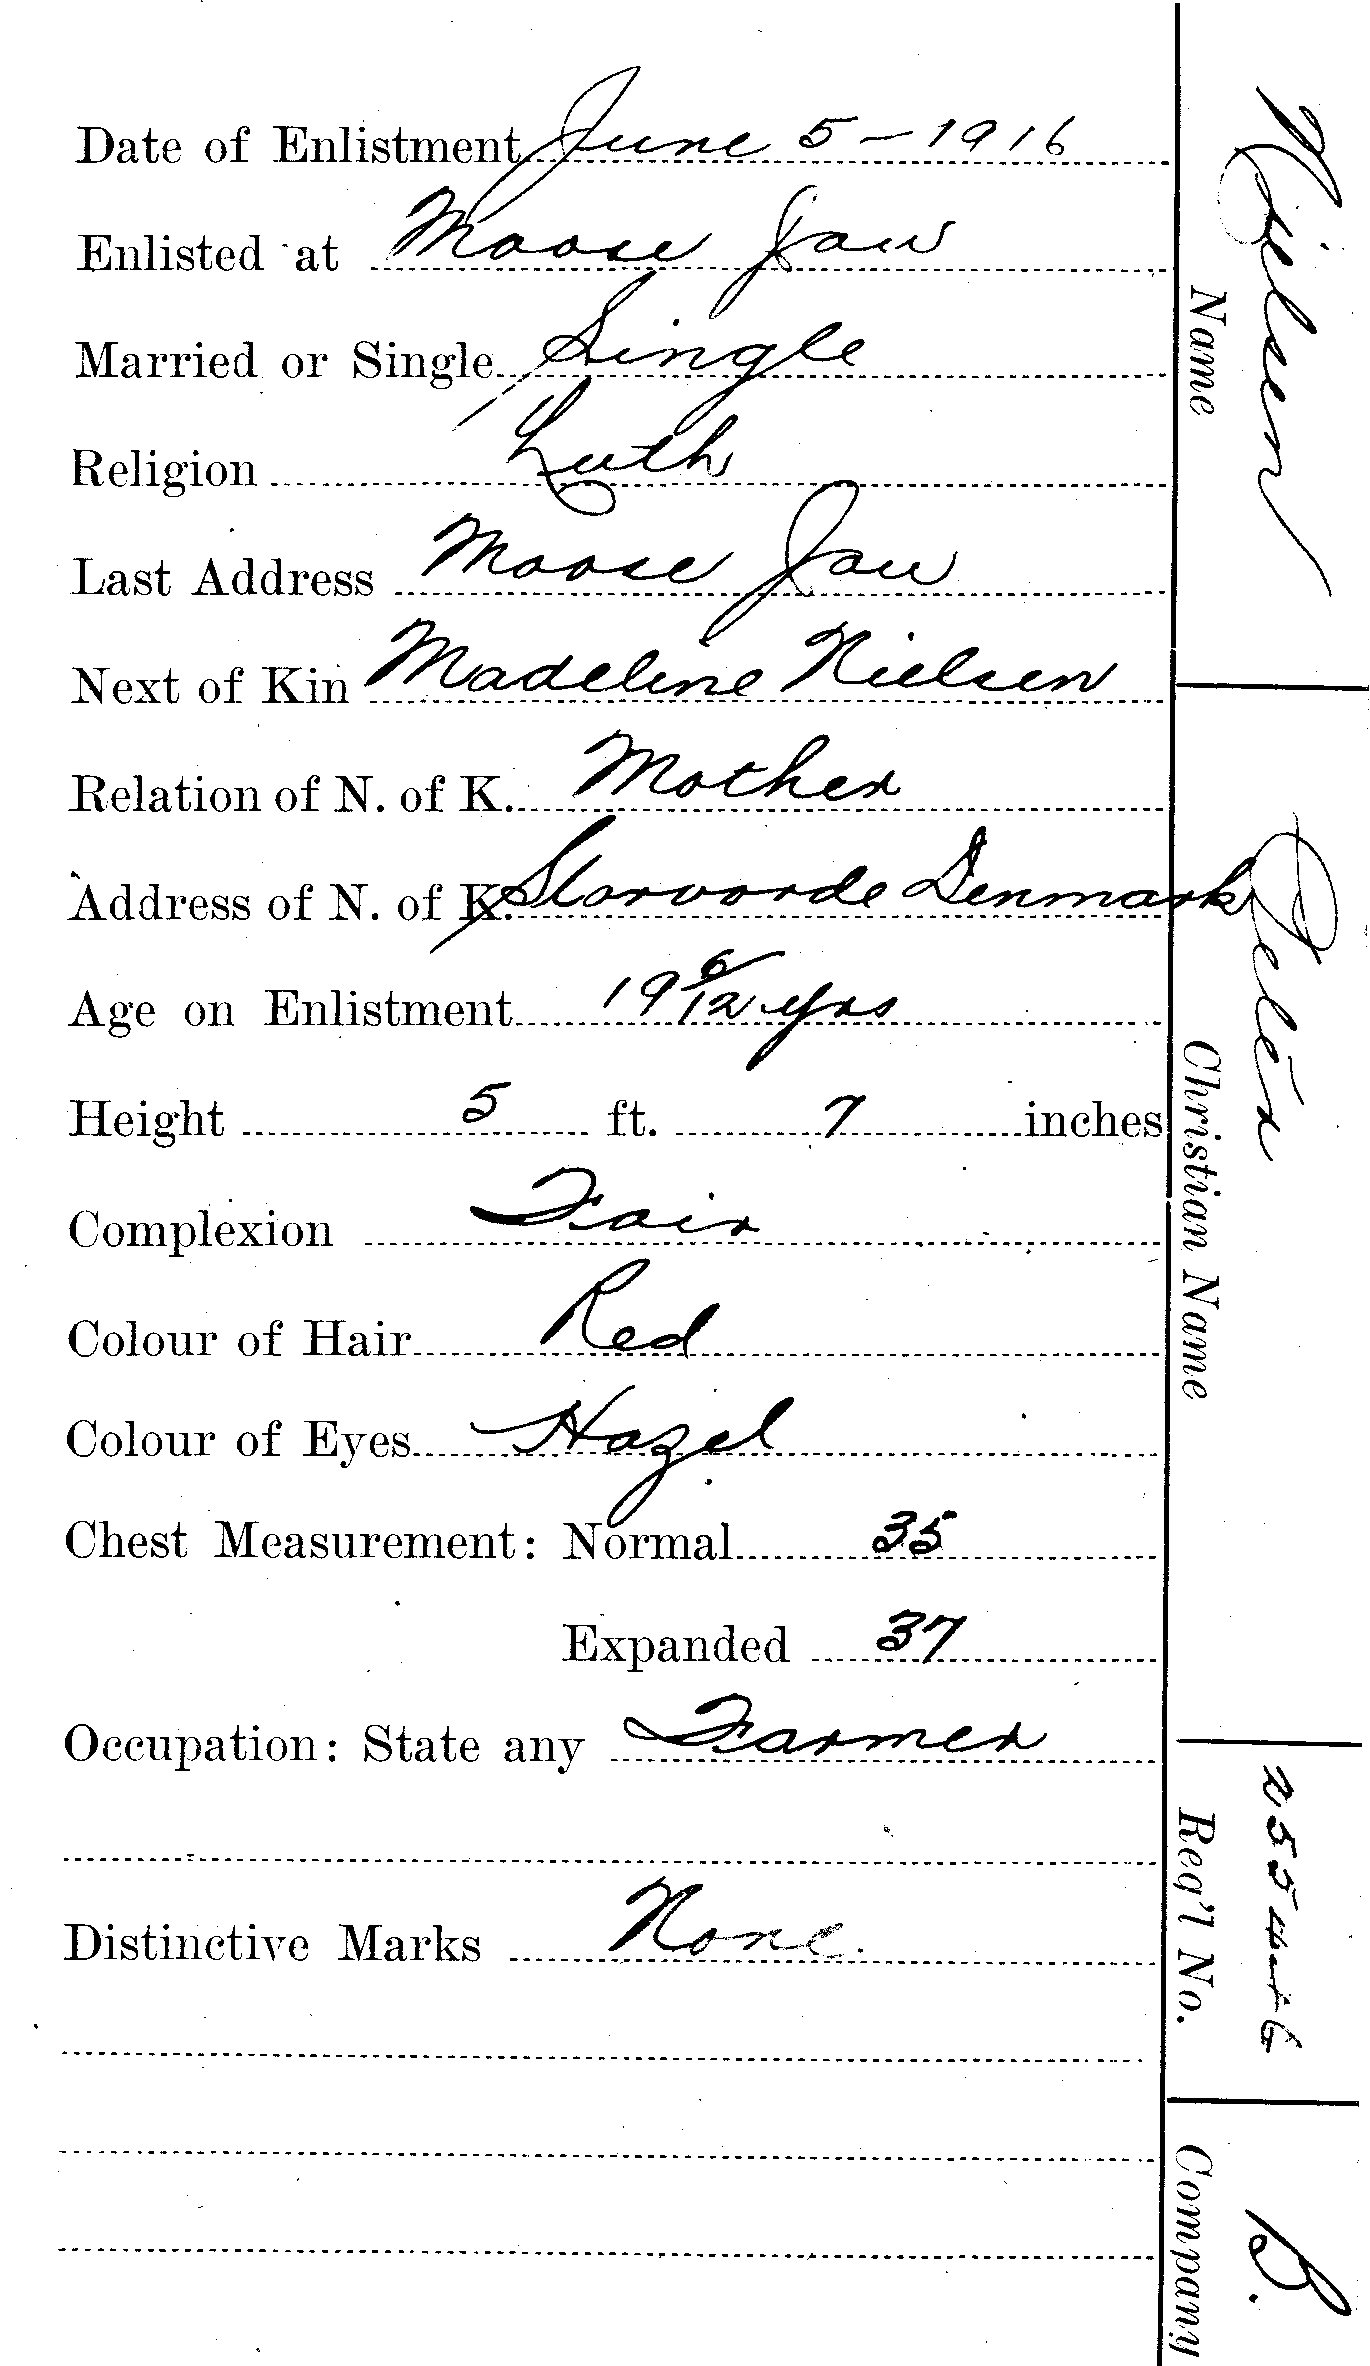 Date of Enlistment June 5 - 1916
Enlisted at Moose Jaw
Married or Single Single
Religion Luth
Last Address Moose Jaw
Next of Kin Madeline Nielsen
Relation of N. of K. Mother
Address of N. of K. Storvorde Denmark
Age on Enlistment 19 6/12 yrs
Height 5 ft. 7 inches
Complexion Fair
Colour of Hair Red
Colour of Eyes Hazel
Chest Measurement: Normal 35
Expanded 37
Occupation: State any Farmer
Distinctive Marks None.
Nielsen
Name
Peter
Christian Name
255446
Reg'l No.
B.
Company